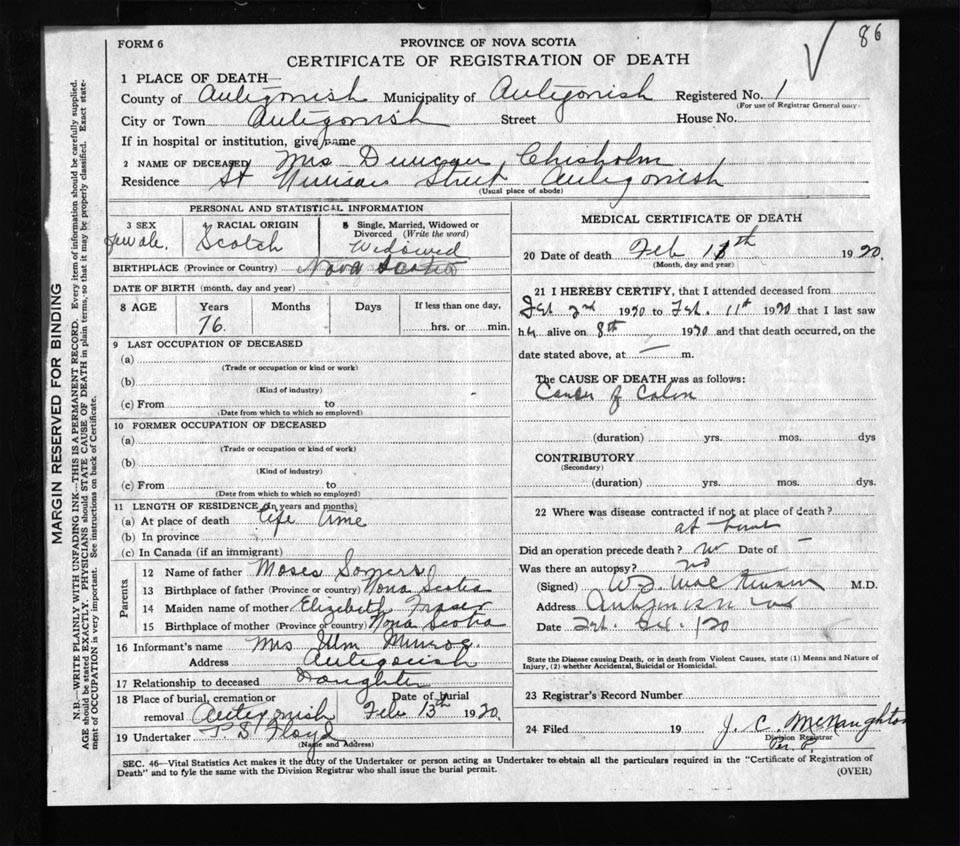 86
FORM 6
PROVINCE OF NOVA SCOTIA
CERTIFICATE OF REGISTRATION OF DEATH
1 PLACE OF DEATH—
County of Antigonish Municipality of Antigonish Registered No. 1
(For use of Registrar General only)
City or Town Antigonish Street House No.
If in hospital or institution, give name
2 NAME OF DECEASED Mrs Duncan Chisholm
Residence St Street Antigonish
(Usual place of abode)
PERSONAL AND STATISTICAL INFORMATION
3 SEX Female.
RACIAL ORIGIN Scotch
5 Single, Married, Widowed or Divorced (Write the word) Widowed
BIRTHPLACE (Province or Country) Nova Scotia
DATE OF BIRTH (month, day and year)
8 AGE Years 76. Months Days If less than one day, hrs. or min.
9 LAST OCCUPATION OF DECEASED
(a)
(Trade or occupation or kind or work)
(b)
(Kind of industry)
(c) From to
(Date from which to which so employed)
10 FORMER OCCUPATION OF DECEASED
(a)
(Trade or occupation or kind of work)
(b)
(Kind of industry)
(c) From to
(Date from which to which so employed)
11 LENGTH OF RESIDENCE (In years and months)
(a) At place of death life time
(b) In province
(c) In Canada (if an immigrant)
Parents
12 Name of father Moses Somers
13 Birthplace of father (Province or country) Nova Scotia
14 Maiden name of mother Elizebeth Fraser
15 Birthplace of mother (Province or country) Nova Scotia
16 Informant's name Mrs Munroe
Address Antigonish
17 Relationship to deceased Daughter
18 Place of burial, cremation or removal Antigonish
Date of burial Feb 13th 1920.
19 Undertaker P. S. Floyd
(Name and Address)
MEDICAL CERTIFICATE OF DEATH
20 Date of death Feb 11th 1920.
(Month, day and year)
21 I HEREBY CERTIFY, that I attended deceased from
Feb. 2nd 1920 to Feb. 11th 1920 that I last saw
her alive on 8th 1920 and that death occurred, on the
date stated above, at — m.
The CAUSE OF DEATH was as follows:
Cancer of Colon
(duration) yrs. mos. dys
CONTRIBUTORY
(Secondary)
(duration) yrs. mos. dys.
22 Where was disease contracted if not at place of death?
at home
Did an operation precede death? no Date of —
Was there an autopsy? no
(Signed) W. F. Mac Kinnon M.D.
Address Antigonish N.S.
Date Feb. /20
State the Disease causing Death, or in death from Violent Causes, state (1) Means and Nature of
Injury, (2) whether Accidental, Suicidal or Homicidal.
23 Registrar's Record Number
24 Filed 19 J. C. McNaughton
Division Registrar
Per P.
SEC. 46—Vital Statistics Act makes it the duty of the Undertaker or person acting as Undertaker to obtain all the particulars required in the "Certificate of Registration of
Death" and to fyle the same with the Division Registrar who shall issue the burial permit.
(OVER)
MARGIN RESERVED FOR BINDING
N.B.—WRITE PLAINLY WITH UNFADING INK—THIS IS A PERMANENT RECORD. Every item of information should be carefully supplied.
AGE should be stated EXACTLY. PHYSICIANS should STATE CAUSE OF DEATH in plain terms, so that it may be properly classified. Exact state-
ment of OCCUPATION is very important. See instructions on back of Certificate.